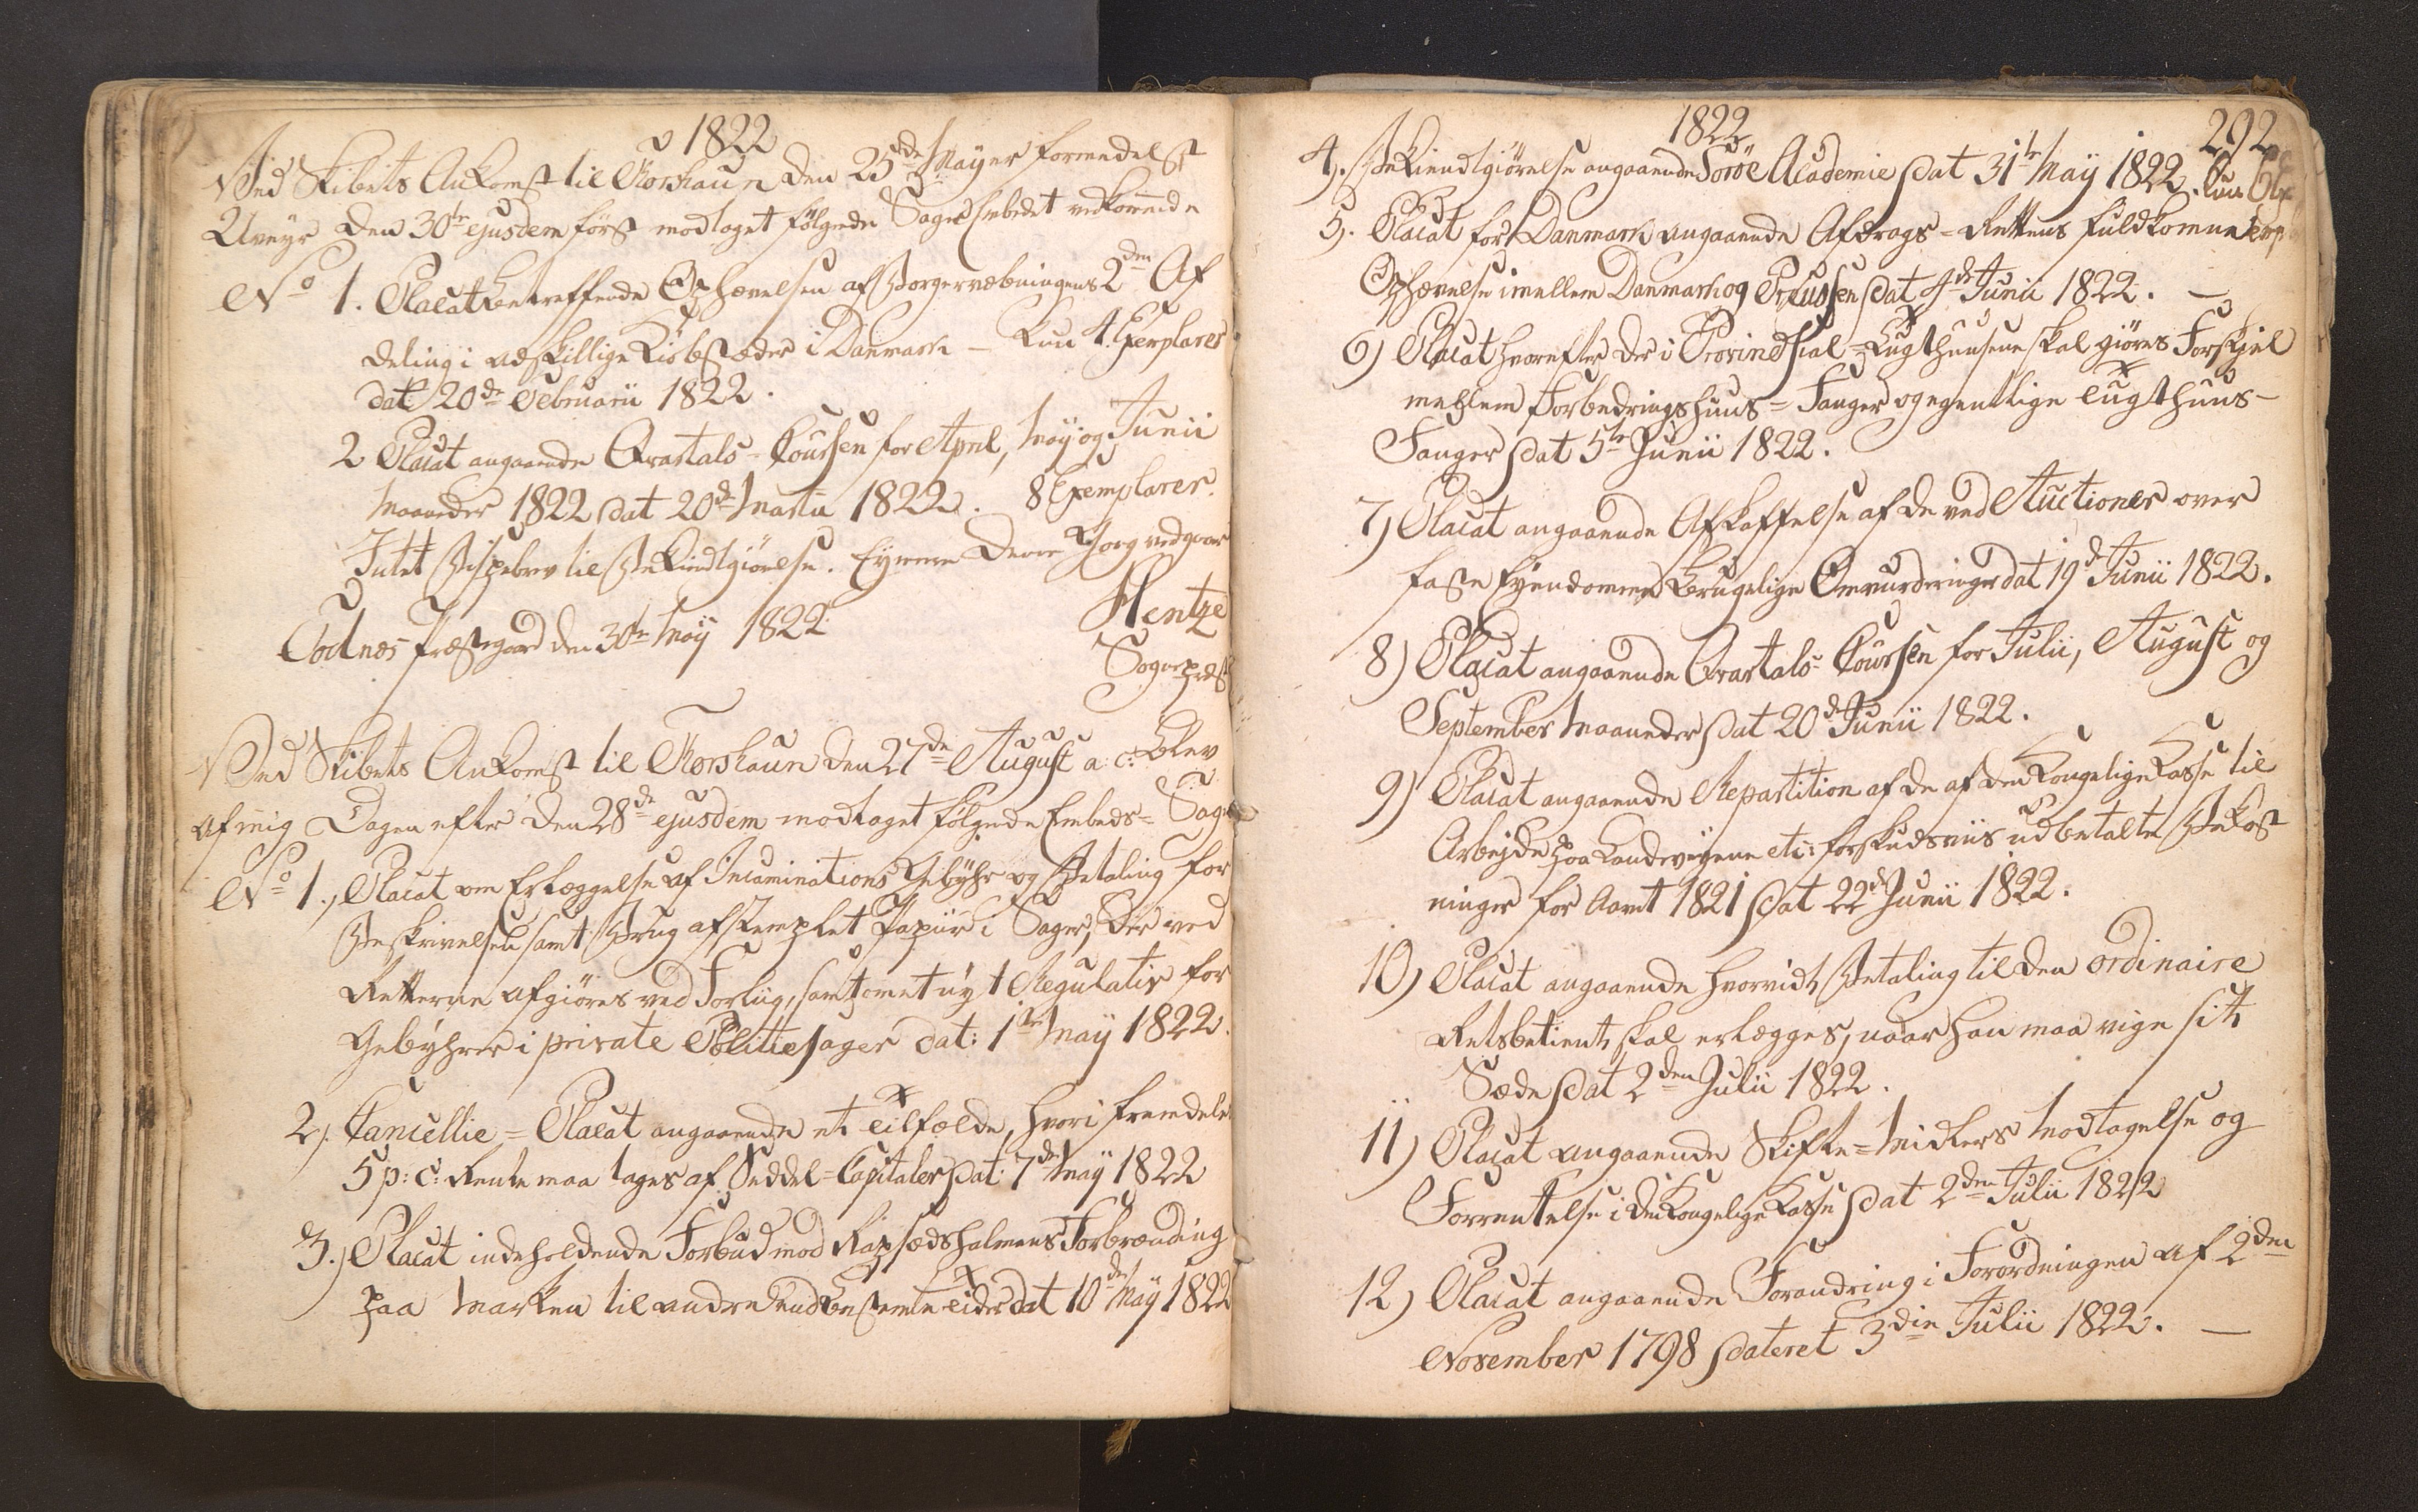 1822
Ved Skibets Ankomst til Thorshavn den 25de May er formedelst
Uveyr den 30te ejusdem først modtaget følgende Sager Embedet vedkommende
No 1. Placat betreffende Ophævelsen af Borgervæbningens 2den Af
deling i adskillige Kiøbstæder i Danmark – Kun 4. Exemplarer
dat: 20de Februarii 1822.
2 Placat angaaende Qvartals-Coursen for April, May og Junii
Maaneder 1822 dat 20de Martii 1822. 8 Exemplarer.
Intet Bispebrev til Bekiendtgiørelse.
Hentze
Qvalnes Præstegaard den 30te May 1822
Sognepræst
Ved Skibets Ankomst til Thorshavn den 27de August a: c: blev
af mig Dagen efter den 28de ejusdem modtaget følgende Embeds- Sager
No 1., Placat om Erlæggelse af Incaminations Gebyhr og Betaling for
Beskrivelsen samt Brug af stemplet Papiir i Sager, der ved
Retterne afgiøres ved Forliig, samt om et nyt Regulativ for
Gebyhrer i private Politiesager dat: 1te May 1822.
2). Cancellie-Placat angaaende et Tilfælde, hvori fremdeles
5 p: c: Rente maa tages af Seddel-Capitaler dat: 7de May 1822
3.) Placat indeholdende Forbud mod Rapsædshalmens Forbrænding
paa Marken til andre end bestemte Tider dat 10de May 1822
1822
292
4). Bekiendtgiørelse angaaende Sorøe Academie dat 31te May 1822. Kun
5). Placat for Danmark angaaende Afdrags-Rettens fuldkomne
Ophævelse imellem Danmark og Preussen dat 4de Junii 1822. –
6) Placat hvorefter der i Provindsial-Tugthuusene skal giøres Forskiel
mellem Forbedringshuus-Fanger og egentlige Tugthuus-
Fanger dat 5te Junii 1822.
7) Placat angaaende Afskaffelse af de ved Auctioner over
faste Eyendomme brugelige Omvurderinger dat 19de Junii 1822.
8) Placat angaaende Qvartals-Coursen for Julii, August og
September Maaneder dat 20de Junii 1822.
9) Placat angaaende Repartition af de af den Kongelige Casse til
Arbejde paa Landeveyene etc: forskudsviis udbetalte Bekost
ninger for Aaret 1821 dat 22de Junii 1822.
10) Placat angaaende hvorvidt Betaling til den ordinaire
Retsbetient skal erlægges, naar han maa vige sit
Sæde dat 2den Julii 1822.
11) Placat angaaende Skifte-Midlers Modtagelse og
Forrentelse i den Kongelige Casse dat 2den Julii 1822
12) Placat angaaende Forandring i Forordningen af 2den
November 1798 dateret 3die Julii 1822. –